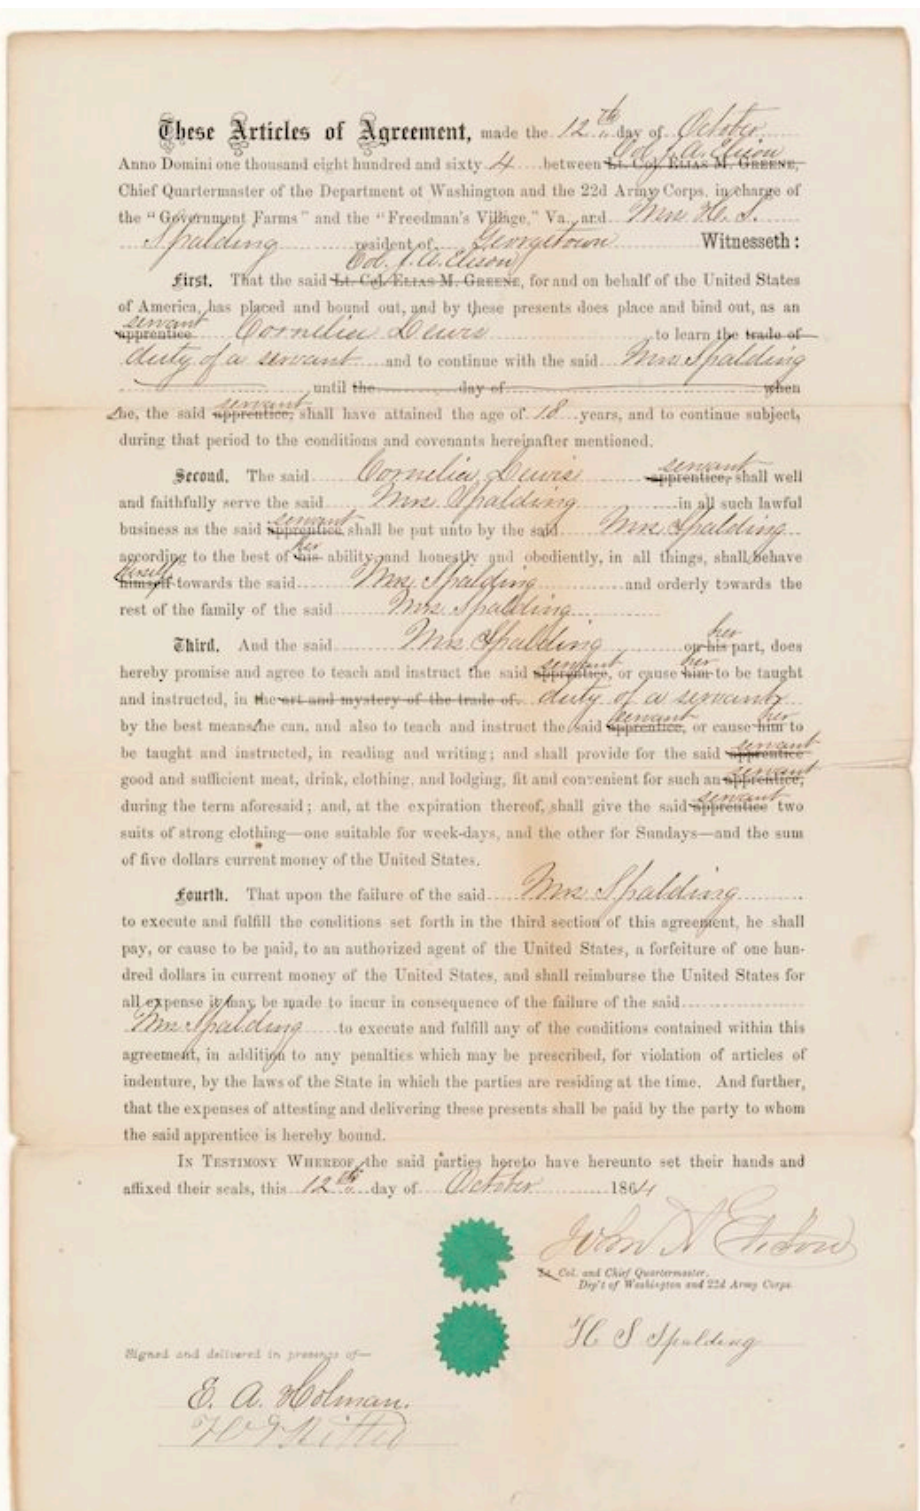 These Articles of Agreement, made the 12th day of October
Col. J. A. Elison
Anno Domini one thousand eight hundred and sixty 4 between Lt. Col. ELIAS M. GREENE,
Chief Quartermaster of the Department of Washington and the 22d Army Corps, in charge of
the "Government Farms" and the "Freedman's Village," Va., and Mrs H. S.
Spalding resident of Georgetown Witnesseth:
Col. J. A. Elison
First. That the said Lt. Col. ELIAS M. GREENE, for and on behalf of the United States
of America, has placed and bound out, and by these presents does place and bind out, as an
servant
apprentice Cornelia Lewis to learn the trade of
duty of a servant and to continue with the said Mrs Spalding
until the day of when
servant
She, the said apprentice, shall have attained the age of 18 years, and to continue subject,
during that period to the conditions and covenants hereinafter mentioned.
servant
Second. The said Cornelia Lewis apprentice, shall well
and faithfully serve the said Mrs. Spalding in all such lawful
servant
business as the said apprentice shall be put unto by the said Mrs. Spalding
her
according to the best of his ability, and honestly and obediently, in all things, shall behave
herself
himself towards the said Mrs Spalding and orderly towards the
rest of the family of the said Mrs. Spalding
her
Third. And the said Mrs Spalding on his part, does
servant her
hereby promise and agree to teach and instruct the said apprentice, or cause him to be taught
and instructed, in the art and mystery of the trade of duty of a servant
servant her
by the best means she can, and also to teach and instruct the said apprentice, or cause him to
servant
be taught and instructed, in reading and writing; and shall provide for the said apprentice
servant
good and sufficient meat, drink, clothing, and lodging, fit and convenient for such an apprentice,
servant
during the term aforesaid; and, at the expiration thereof, shall give the said apprentice two
suits of strong clothing—one suitable for week-days, and the other for Sundays—and the sum
of five dollars current money of the United States.
Fourth. That upon the failure of the said Mrs Spalding
to execute and fulfill the conditions set forth in the third section of this agreement, he shall
pay, or cause to be paid, to an authorized agent of the United States, a forfeiture of one hun-
dred dollars in current money of the United States, and shall reimburse the United States for
all expense it may be made to incur in consequence of the failure of the said
Mrs Spalding to execute and fulfill any of the conditions contained within this
agreement, in addition to any penalties which may be prescribed, for violation of articles of
indenture, by the laws of the State in which the parties are residing at the time. And further,
that the expenses of attesting and delivering these presents shall be paid by the party to whom
the said apprentice is hereby bound.
IN TESTIMONY WHEREOF, the said parties hereto have hereunto set their hands and
affixed their seals, this 12th day of October 1864
John A Elison
Lt. Col. and Chief Quartermaster,
Dep't of Washington and 22d Army Corps.
H S Spalding
Signed and delivered in presence of—
E. A. Holman.